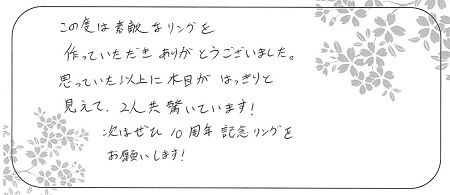 この度は素敵なリングを
作っていただきありがとうございました。
思っていた以上に木目がはっきりと
見えて、2人共驚いています!
次はぜひ10周年記念リングを
お願いします!